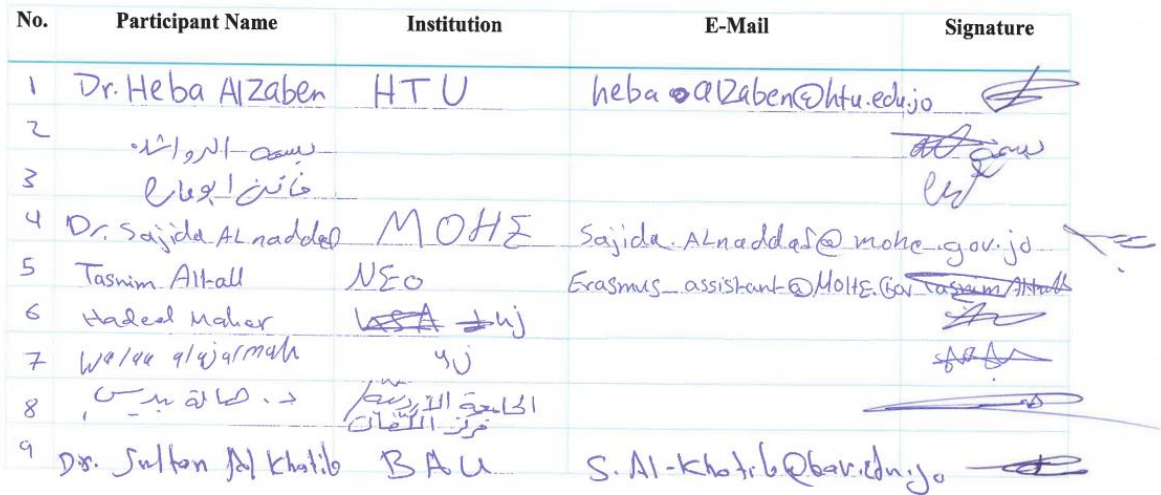 No. Participant Name Institution E-Mail Signature
1 Dr. Heba Alzaben HTU heba.alzaben@htu.edu.jo
2 بسمه الرواشده بسمة
3 فاتن ابو
4 Dr. Sajida ALnaddaf MOHE Sajida.ALnaddaf@mohe.gov.jo
5 Tasnim Altall NEO Erasmus_assistant@MOHE.Gov Tasnim Altall
6 Hadeel Maher uj
7 Walaa alajarmah
8 د. الجامعة الأردنية
مركز اللغات
9 Dr. Sultan Al Khatib BAU S.Al-Khatib@bau.edu.jo